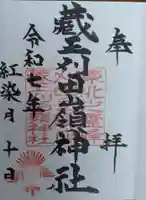 奉拝
蔵王刈田嶺神社
令和七年
紅染月十日